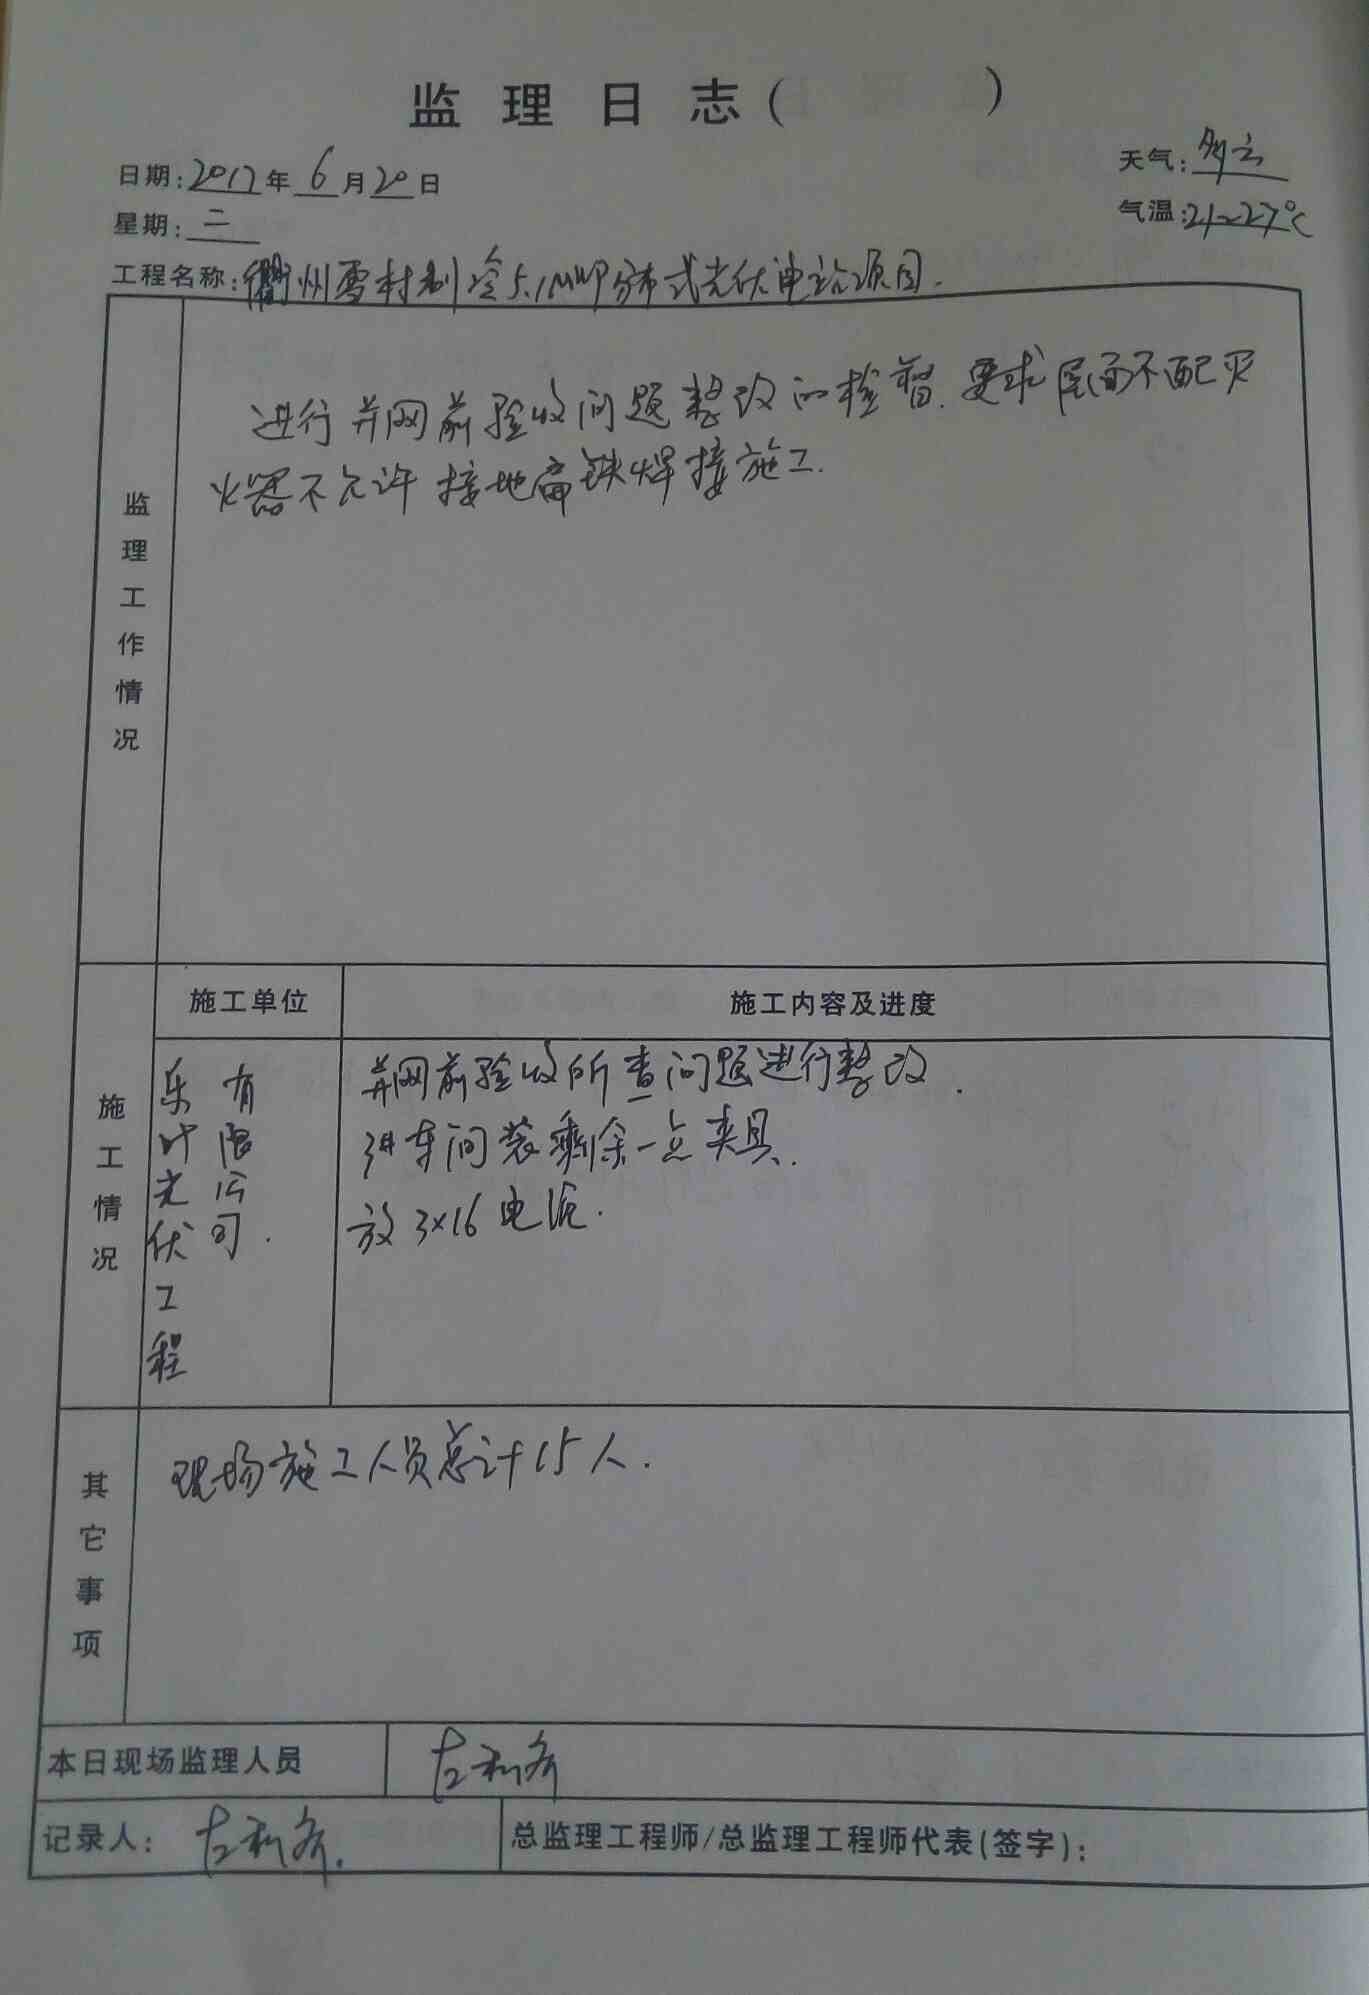 监理日志( )
日期:2017年6月20日
天气:多云
星期:二
气温:21~27℃
工程名称:衢州雪村制冷5.1MWP分布式光伏电站项目.
监理工作情况
进行并网前验收问题整改的检督.要求屋面不配灭
火器不允许接地扁铁焊接施工.
施工情况
施工单位
施工内容及进度
乐叶光伏工程
有限公司.
并网前验收所查问题进行整改.
车间装剩余一点夹具.
放3×16电缆.
其它事项
现场施工人员总计15人.
本日现场监理人员
记录人:
总监理工程师/总监理工程师代表(签字):